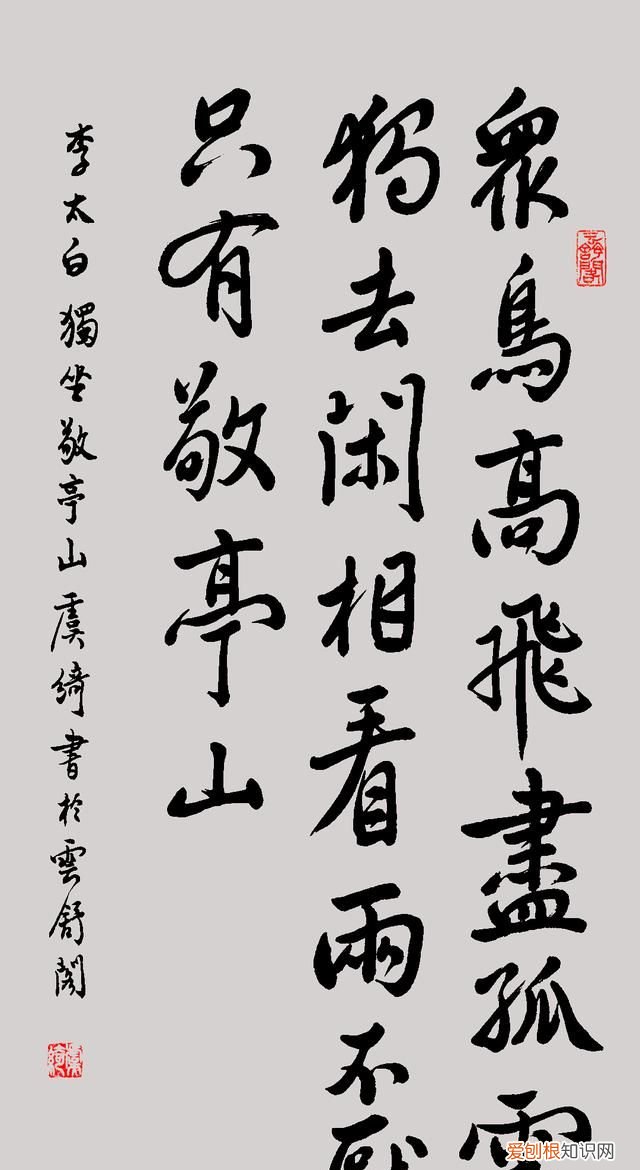 眾鳥高飛盡孤雲
獨去閑相看兩不厭
只有敬亭山
李太白獨坐敬亭山虞綺書於雲舒閣
爱刨根知识网